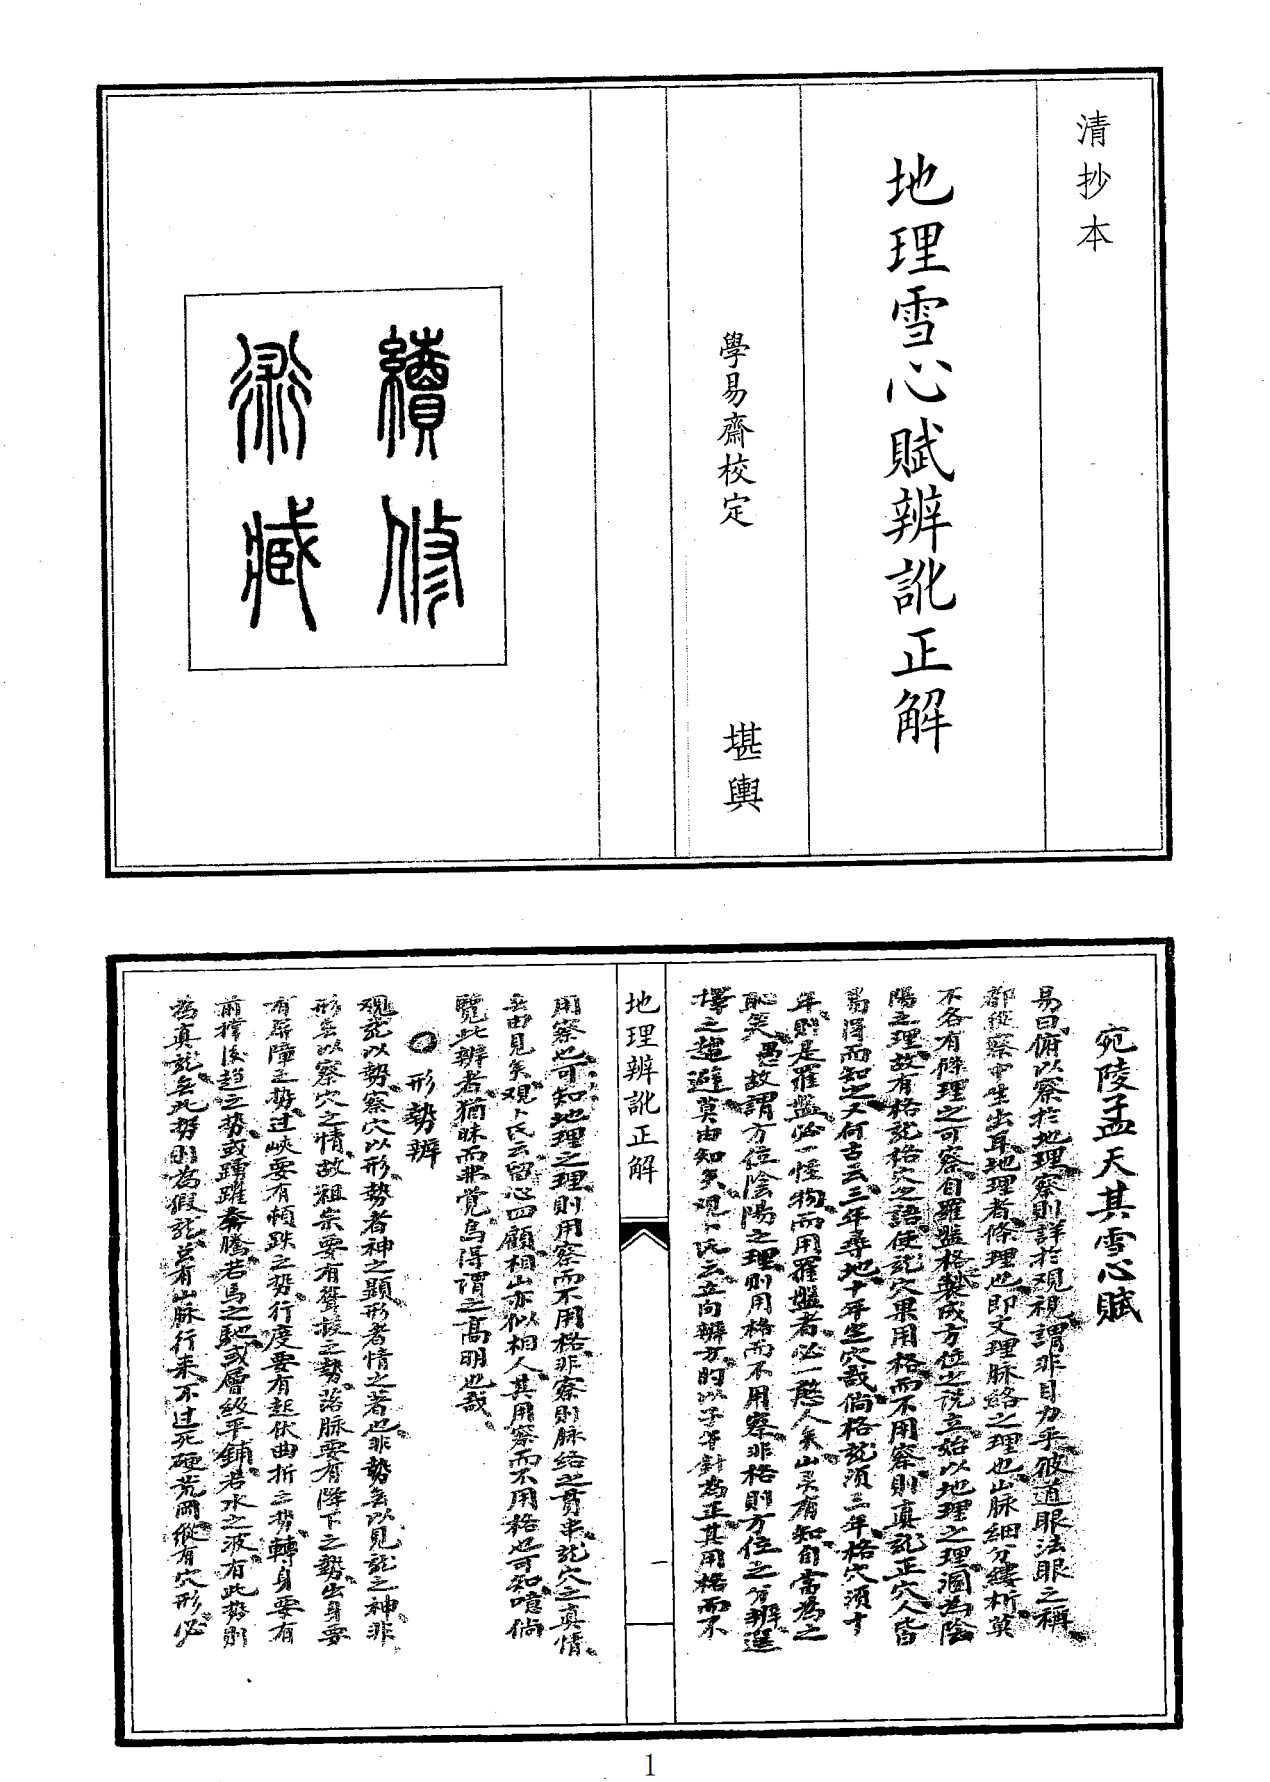 清抄本
地理雪心賦辨訛正解
學易齋校定
堪輿
續修
術藏
宛陵孟天其雪心賦
易曰俯以察於地理察則詳於观視謂非目力乎彼道眼法眼之稱
都從察中生出耳地理者條理也即文理脉絡之理也山脉細分縷析莫
不各有條理之可察自羅盤格製成方位之说立始以地理之理溷為陰
陽之理故有格龙格穴之語使龙穴果用格而不用察則真龙正穴人皆
易得而知之又何古云三年尋地十年定穴哉倘格龙須三年格穴須十
年則是羅盤必一怪物而用羅盤者必一憨人矣山灵有知自當為之
恥笑愚故謂方位陰陽之理則用格而不用察非格則方位之分辨選
擇之趨避莫由知矣观卜氏云立向辨方的以子午針為正其用格而不
用察也可知地理之理則用察而不用格非察則脉络之貫串龙穴之真情
無由見矣观卜氏云留心四顧相山亦似相人其用察而不用格也可知噫倘
覽此辨者猶昧而弗覚烏得謂之高明也哉
形勢辨
观龙以勢察穴以形勢者神之顯形者情之著也非勢無以見龙之神非
形無以察穴之情故祖宗要有聳拔之勢落脉要有降下之勢出身要
有屏障之勢过峡要有頓跌之势行度要有起伏曲折之势轉身要有
前撑後趋之势或踴躍奔騰若馬之馳或層級平鋪若水之波有此势則
為真龙無此势則為假龙虽有山脉行来不过死硬荒岡縱有穴形必
地理辨訛正解
一
1